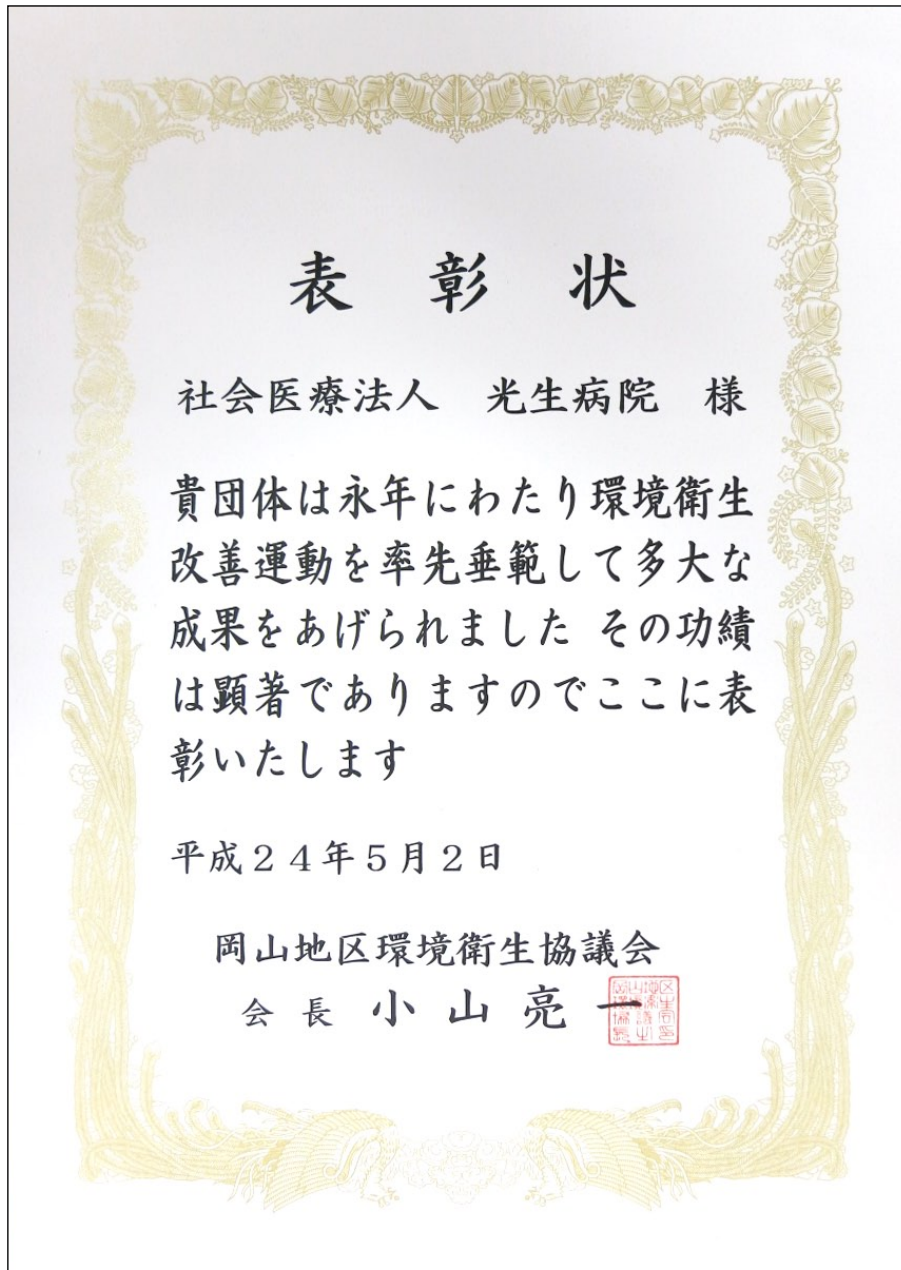 表 彰 状
社会医療法人 光生病院 様
貴団体は永年にわたり環境衛生
改善運動を率先垂範して多大な
成果をあげられました その功績
は顕著でありますのでここに表
彰いたします
平成24年5月2日
岡山地区環境衛生協議会
会長 小山亮一